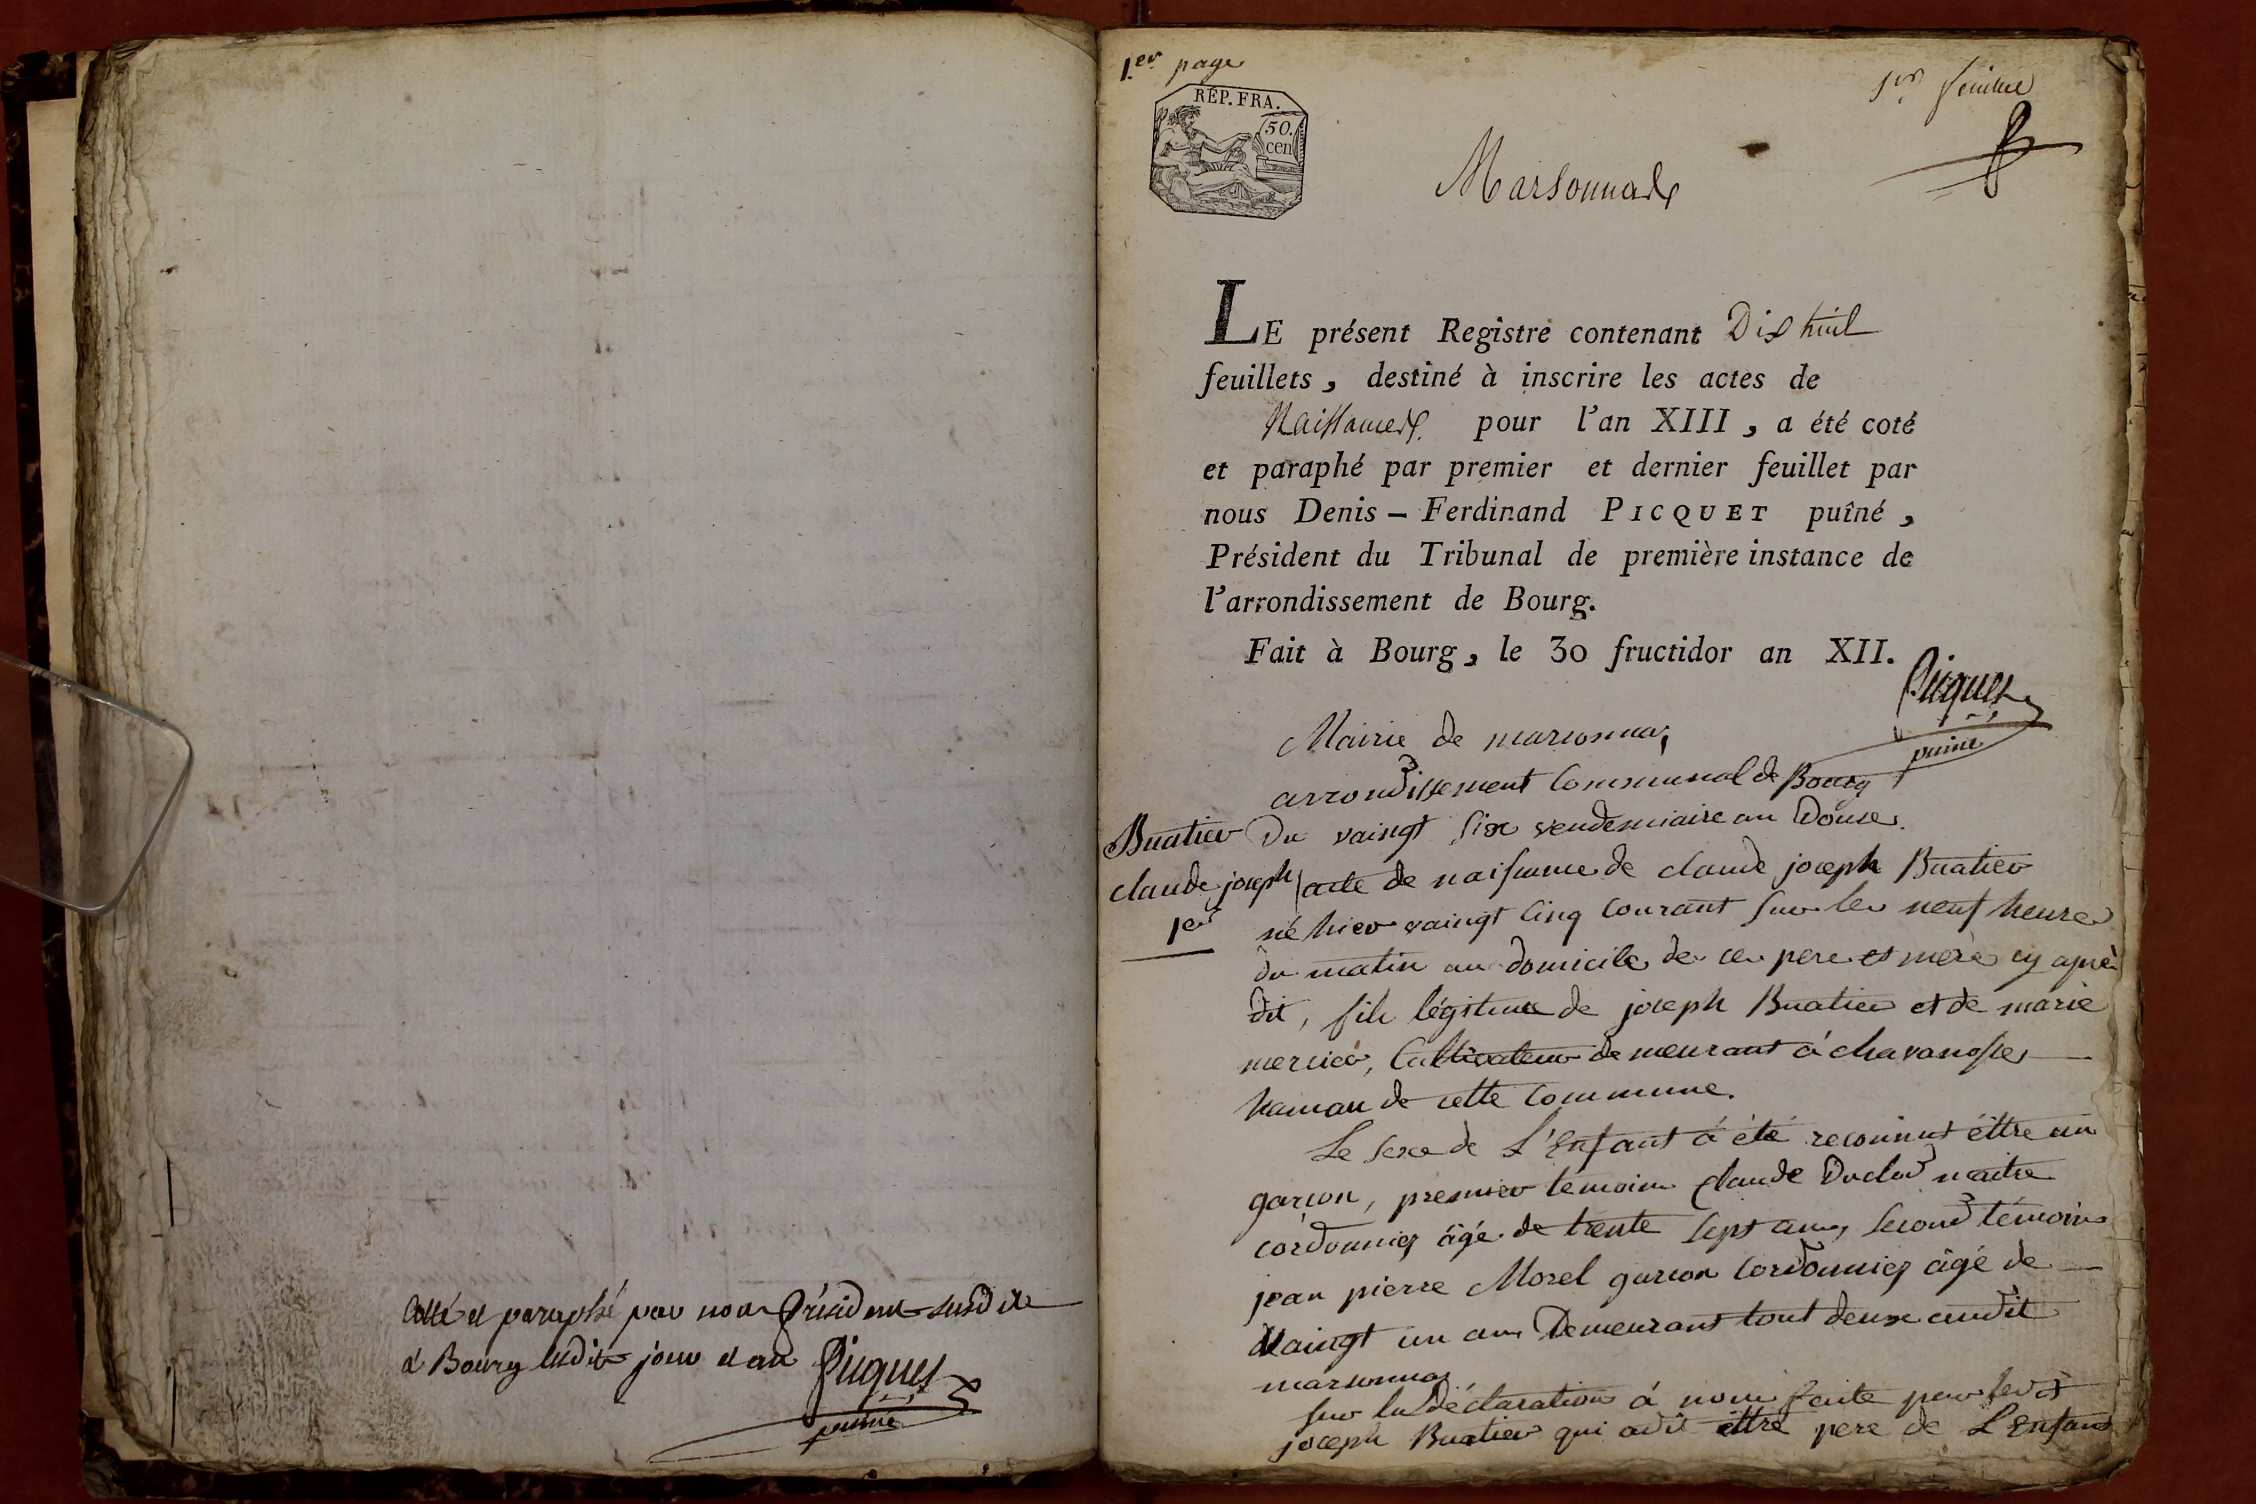 Cotté et paraphé par nous Président susdit
à Bourg ledit jour et an Picquet
puiné
1.er page
1.er feuillet
RÉP. FRA.
50.
cen
Marsonnas
LE présent Registre contenant Dix huit
feuillets, destiné à inscrire les actes de
Naissances pour l'an XIII, a été coté
et paraphé par premier et dernier feuillet par
nous Denis – Ferdinand PICQUET puîné,
Président du Tribunal de première instance de
l'arrondissement de Bourg.
Fait à Bourg, le 30 fructidor an XII.
Picquet
puiné
Mairie de marsonnas
arrondissement Communal de Bourg
Buatier
claude joseph
1er
Du vaingt six vendemiaire an Douse.
acte de naissance de claude joseph Buatier
né hier vaingt cinq courant sur les neuf heures
du matin au domicile de ces pere et mere cy après
dit, fils légitime de joseph Buatier et de marie
mercier, Cultivateur demeurant à chavanosse
hamau de cette commune.
Le sexe de L'Enfant à été reconnut éttre un
garcon, premier temoin claude Duclod maitre
cordonnier âgé de trente sept ans, second témoins
jean pierre Morel garcon cordonnier âgé de
vaingt un ans Demeurant tout deux audit
marsonnas
sur la déclaration à nous faite par led
joseph Buatier qui a dit éttre pere de L'Enfant